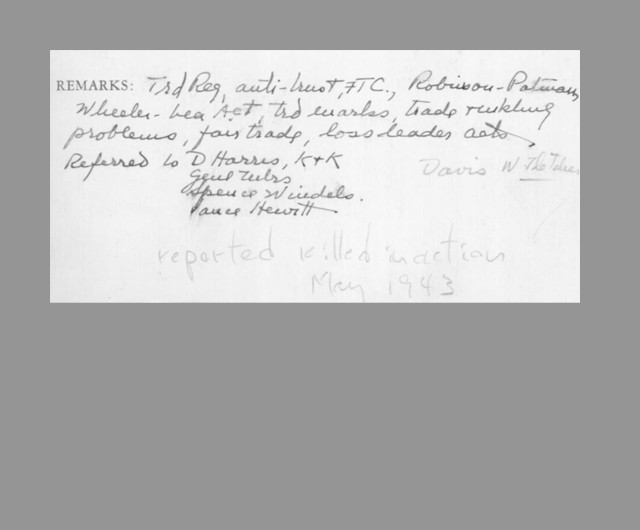 REMARKS: Trd Reg, anti-trust, FTC., Robinson-Patman
Wheeler-Lea Act, trd marks, trade
problems, fair trade, loss leader acts,
Referred to D Harris, K+K
Davis W
Spence Windels.
Vance Hewitt
reported killed in action
May 1943